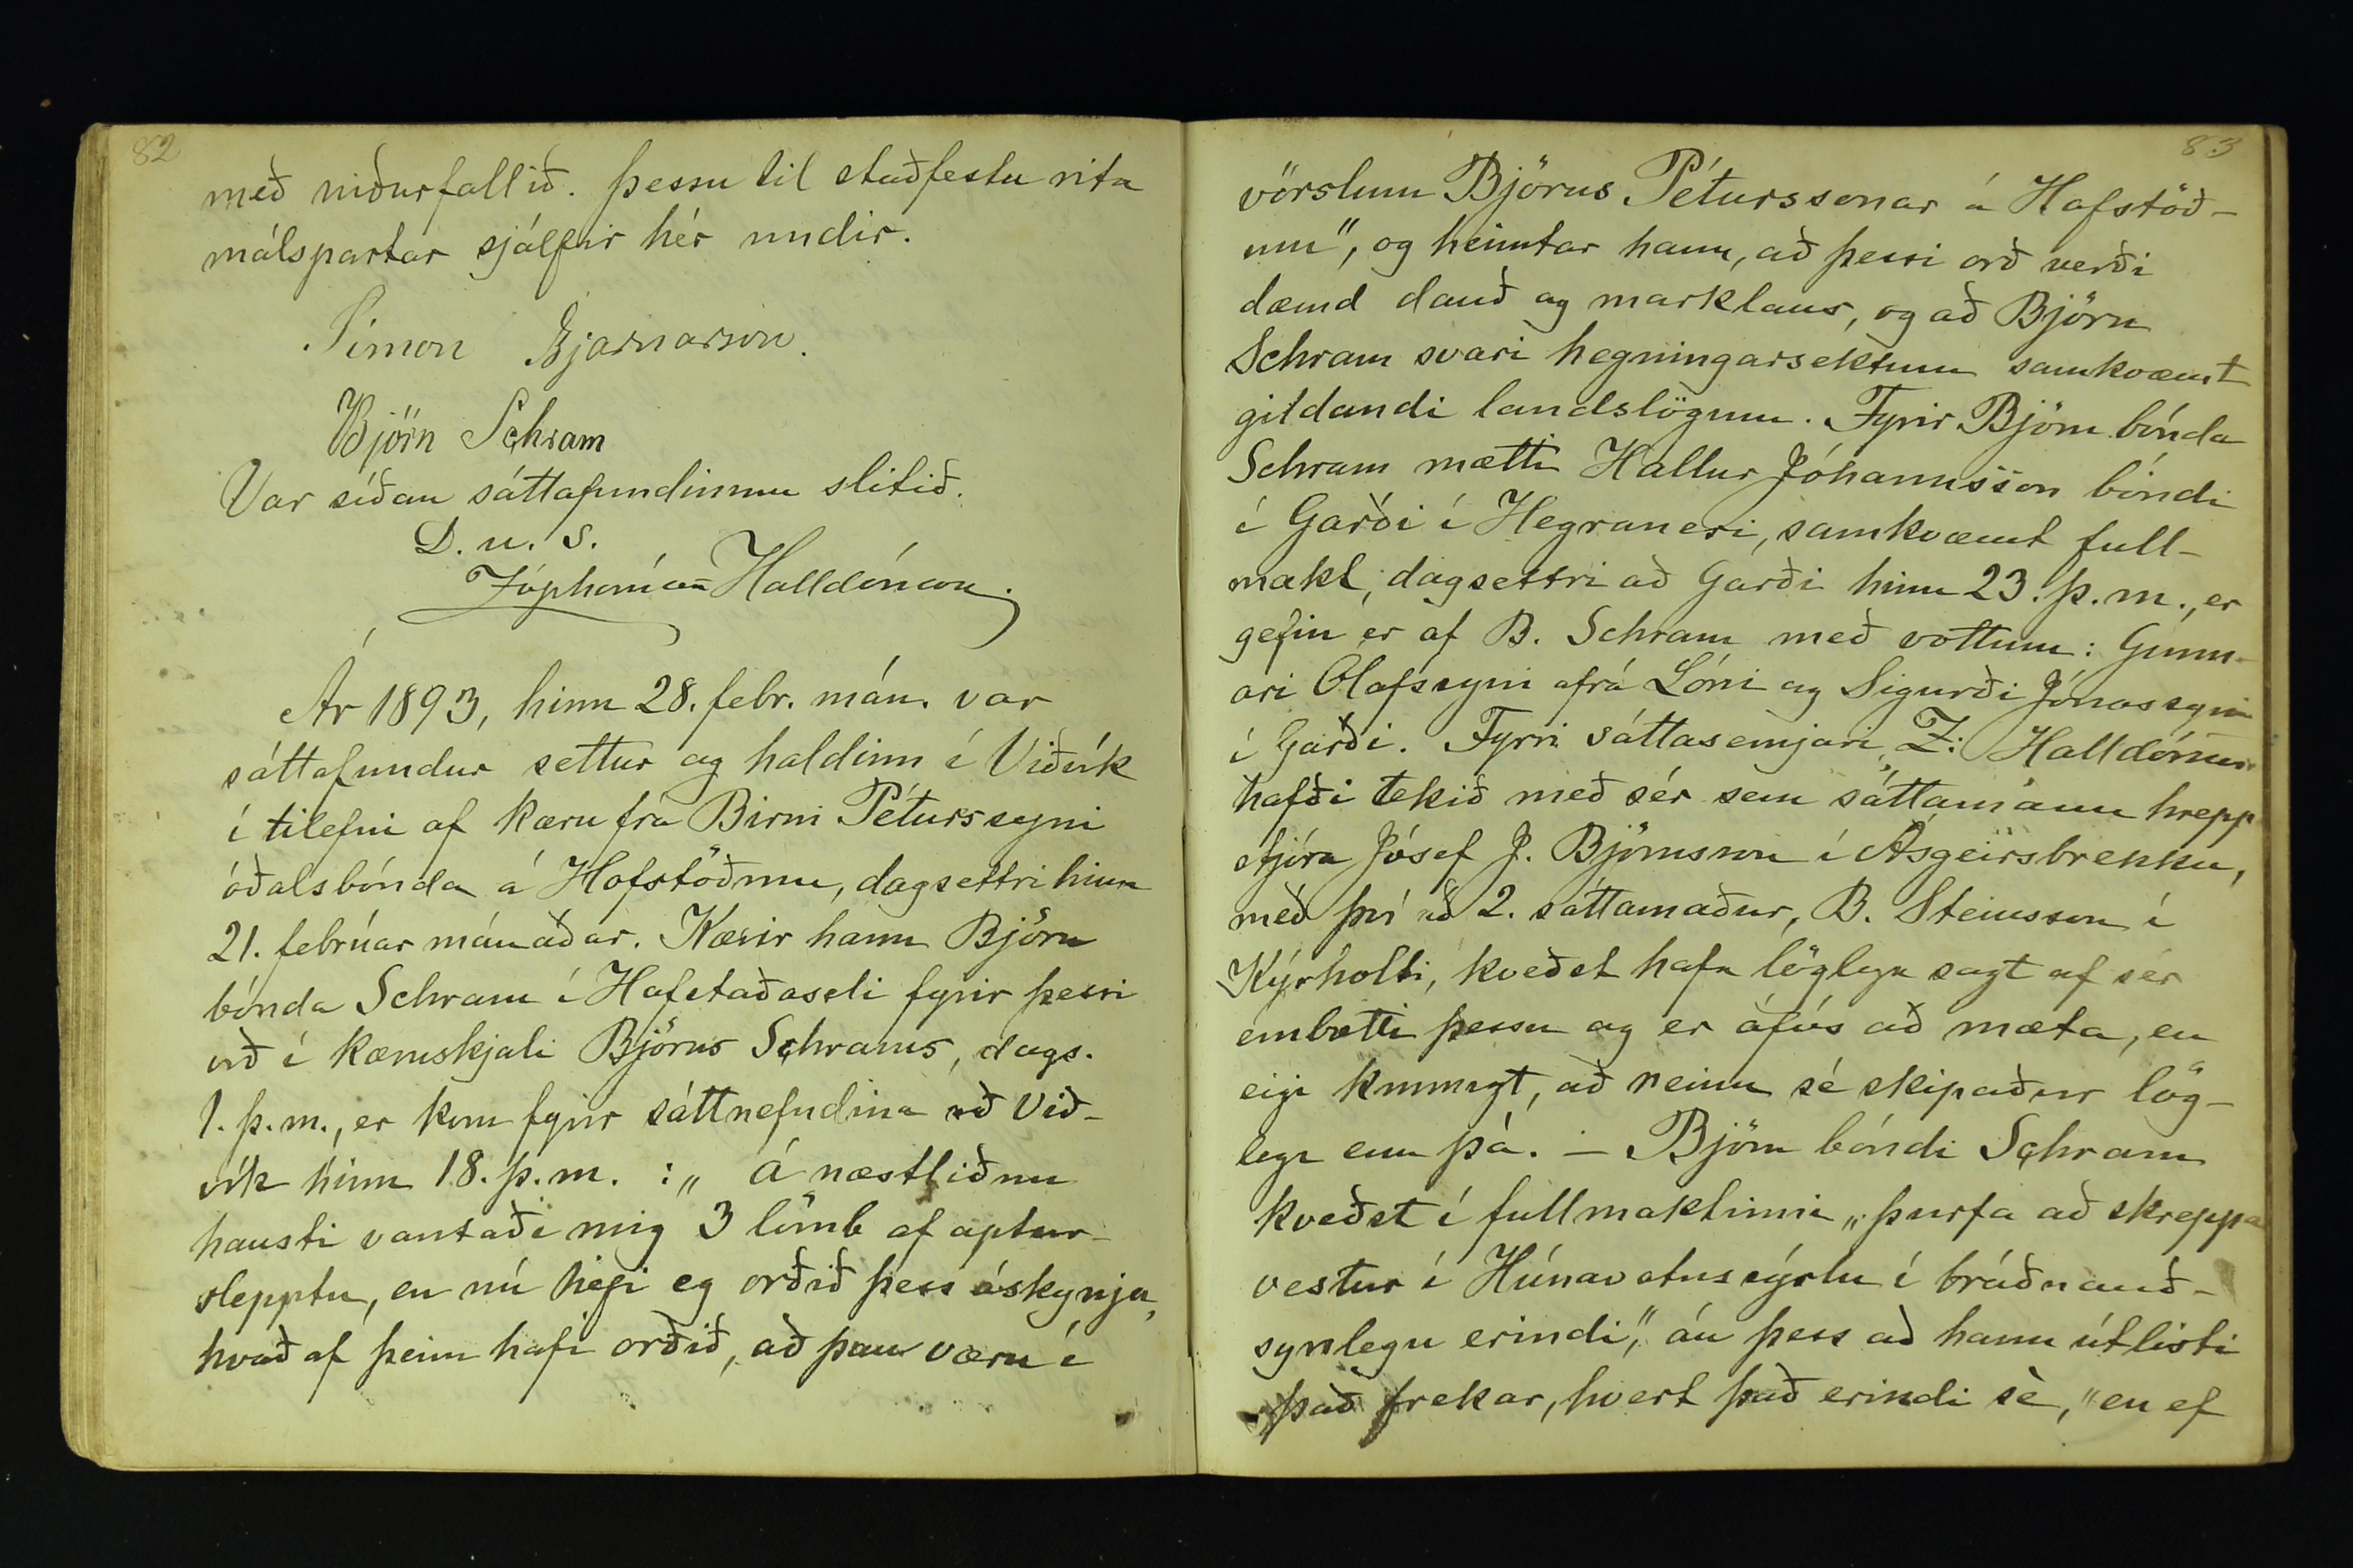 82
með niðurfallið. Þessu til staðfestu rita
málspartar sjálfir hér undir.
Símon Bjarnarson.
Björn Schram
Var síðan sáttafundinum slitið.
D. u. s.
Zóphonías Halldórsson.
Ár 1893, hinn 28. febr. mán. var
sáttafundur settur og haldinn í Viðvík
í tilefni af kæru frá Birni Péturssyni
óðalsbónda á Hofstöðum, dagsettri hinn
21. febrúar mánaðar. Kærir hann Björn
bónda Schram í Hofstaðaseli fyrir þessi
orð í kæruskjali Björns Schrams, dags.
1. þ. m., er kom fyrir sáttnefndina að Við-
vík hinn 18. þ. m. : „ Á næstliðnu
hausti vantaði mig 3 lömb af aptur-
slepptu, en nú hefi eg orðið þess áskynja,
hvað af þeim hafi orðið, að þau væru í
83
vörslum Björns Péturssonar á Hofstöð-
um", og heimtar hann, að þessi orð verði
dæmd dauð og marklaus, og að Björn
Schram svari hegningarsektum samkvæmt
gildandi landslögum. Fyrir Björn bónda
Schram mætti Hallur Jóhannsson bóndi
í Garði í Hegranesi, samkvæmt full-
makt, dagsettri að Garði hinn 23. þ. m., er
gefin er af B. Schram með vottum: Gunn-
ari Ólafssyni afrá Lóni og Sigurði Jónassyni
í Garði. Fyrri sáttasemjari, Z. Halldórsson
hafði tekið með sér sem sáttamann hrepp
stjóra Jósef J. Björnsson í Ásgeirsbrekku,
með því að 2. sáttamaður, B. Steinsson í
Kýrholti, kveðst hafa löglega sagt af sér
embætti þessu og er ófús að mæta, en
eigi kunnugt, að neinn sé skipaður lög-
lega enn þá. — Björn bóndi Schram
kveðst í fullmaktinni „þurfa að skreppa
vestur í Húnavatnssýslu í bráðnauð-
synlegu erindi", án þess að hann útlisti
það frekar, hvert það erindi sé, "en ef